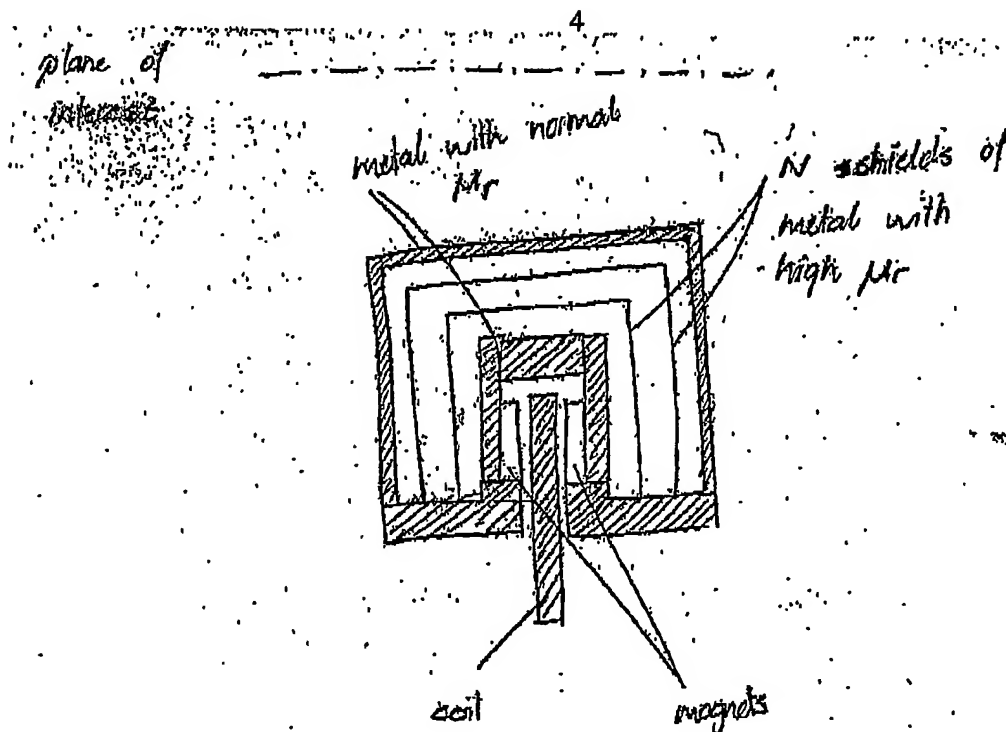 4
plane of
interest
metal with normal
μr
N shields of
metal with
high μr
coil
magnets